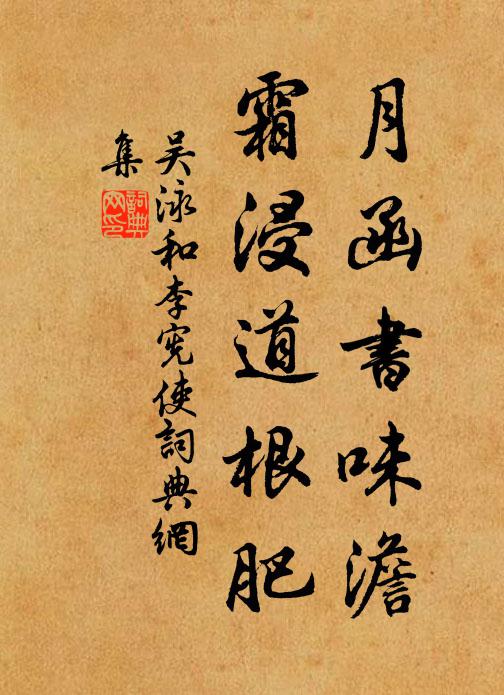 月函書味澹
霜浸道根肥
吴泳和李宪使詞典網
集
詞典网印